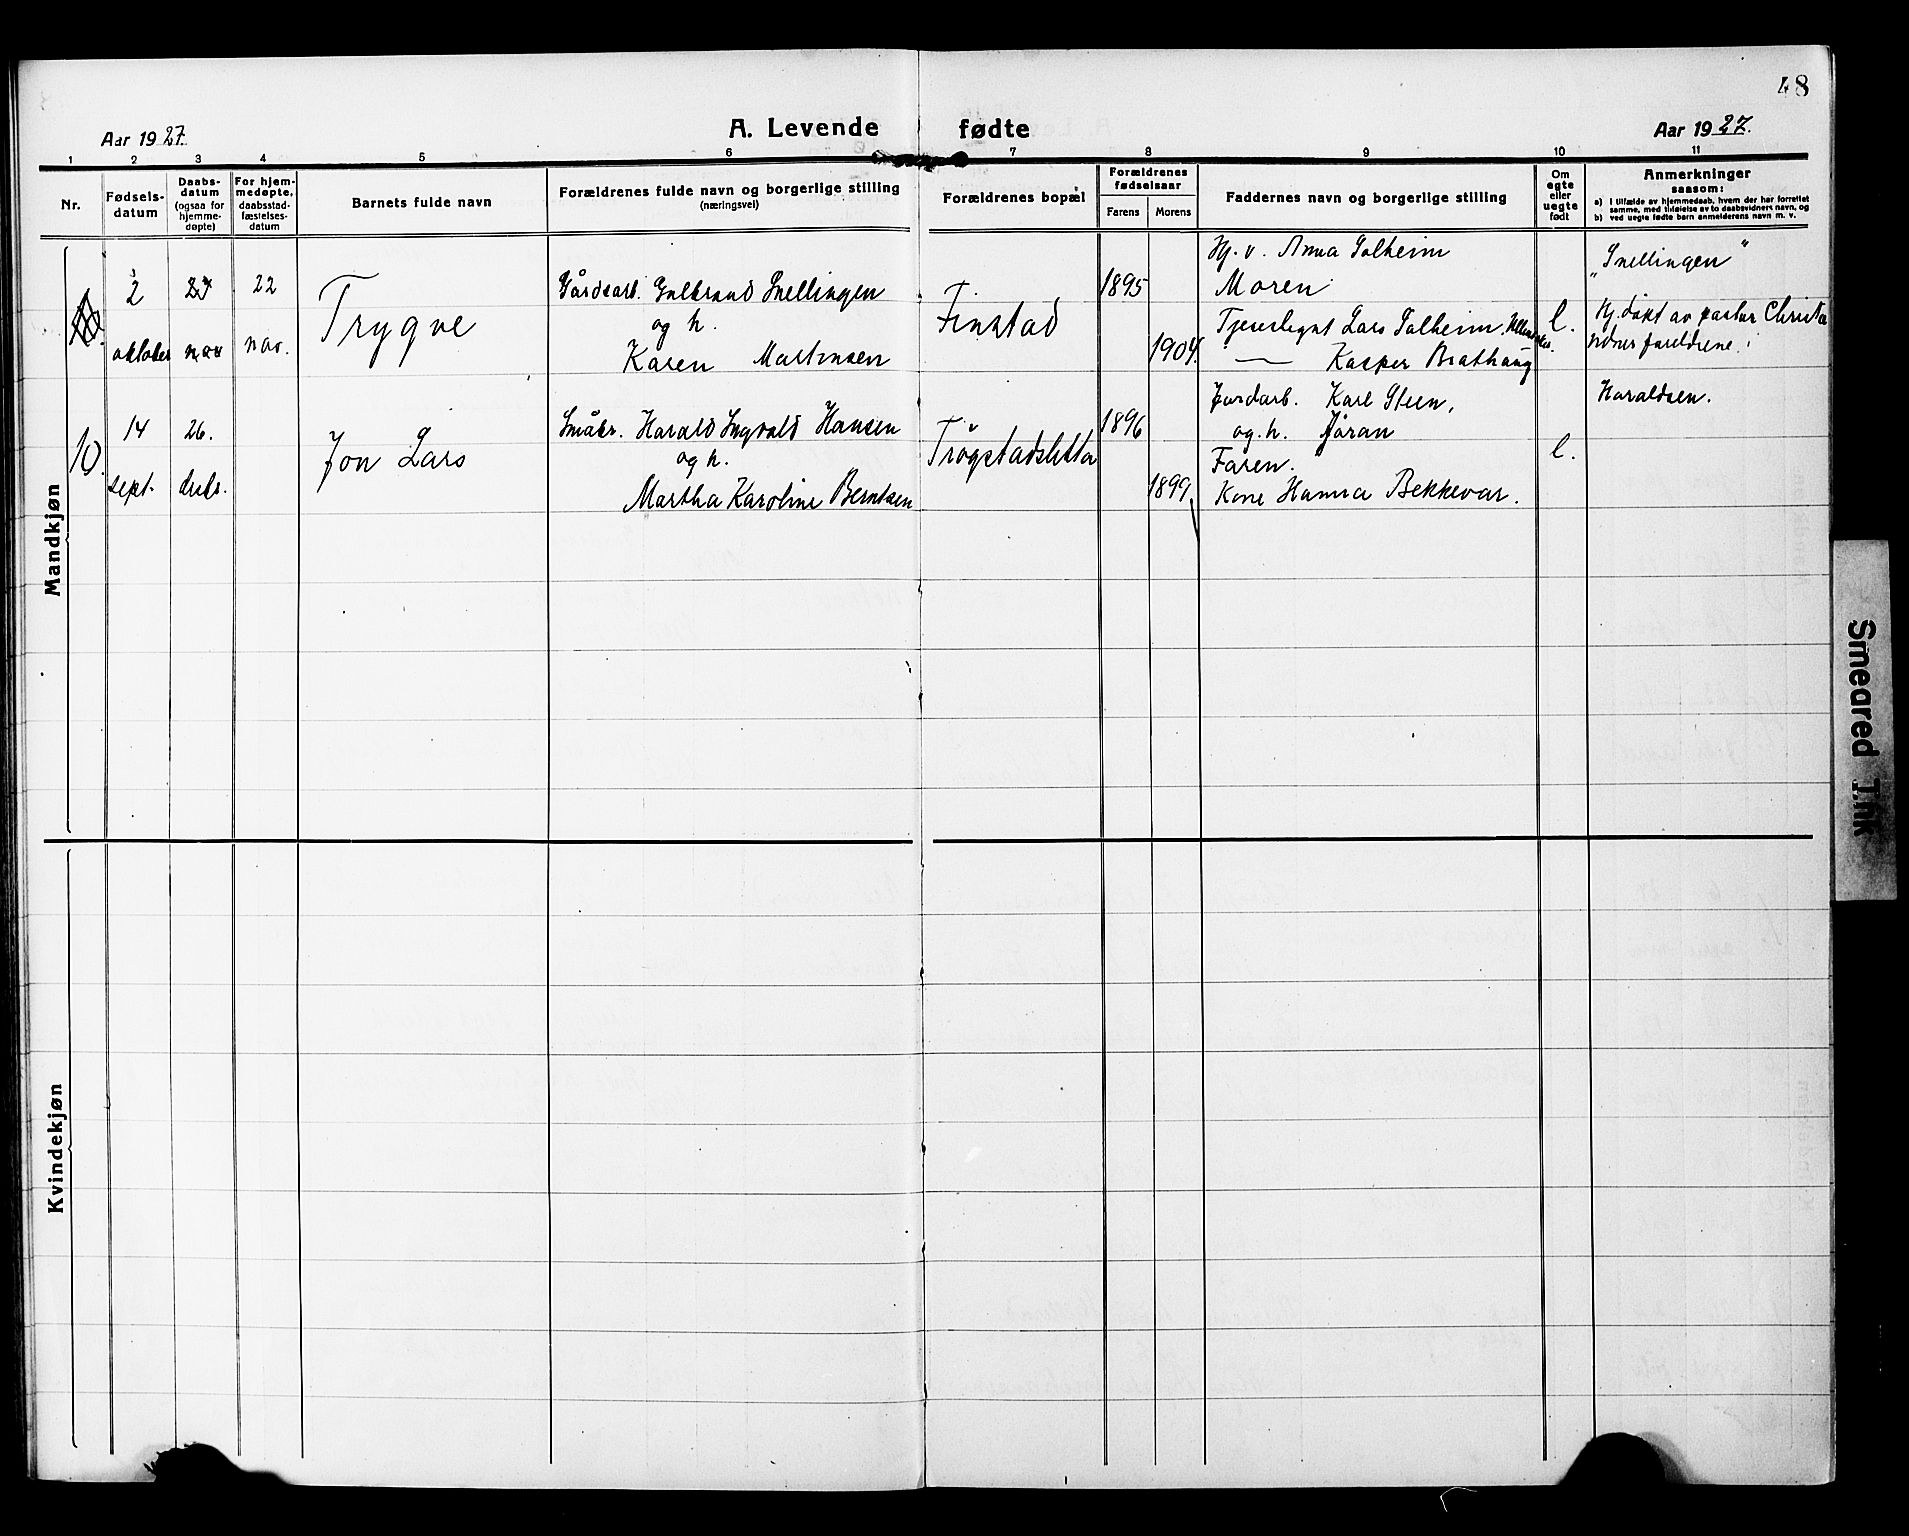 48
Aar 1927.
A. Levende fødte
Aar 1927.
1 2 3 4 5 6 7 8 9 10 11
Nr.
Fødsels-
datum
Daabs-
datum
(ogsaa for
hjemme-
døpte)
For hjem-
medøpte,
daabsstad-
fæstelses-
datum
Barnets fulde navn
Forældrenes fulde navn og borgerlige stilling
(næringsvei)
Forældrenes bopæl
Forældrenes
fødselsaar
Farens Morens
Faddernes navn og borgerlige stilling
Om
egte
eller
uegte
født
Anmerkninger
saasom:
a) I tilfælde av hjemmedaab, hvem der har forrettet
samme, med tilføielse av to daabsvidners navn, og
b) ved uegte fødte barn anmelderens navn m. v.
Mandkjøn
2
oktober
27
nov
22
nov.
Trygve
Gårdsarb. Gulbrand Snellingen
og h.
Karen Martinsen
Finstad
1895
1904.
Hj. v. Anna Solheim
Moren
Tjenestegut Lars Solheim,
— Kasper Brathaug
l.
"Snellingen"
Hj. døpt av pastor Christie
vidner foreldrene.
10.
14
sept.
26.
decbr.
Jon Lars
Småbr. Harald Ingvald Hansen
og h.
Martha Karoline Berntsen
Trøgstadsletta
1896
1899
Jordarb. Karl Steen,
og. h. Jøran
Faren.
Kone Hanna Bekkevar.
l.
Haraldsen.
Kvindekjøn
Smeared Ink